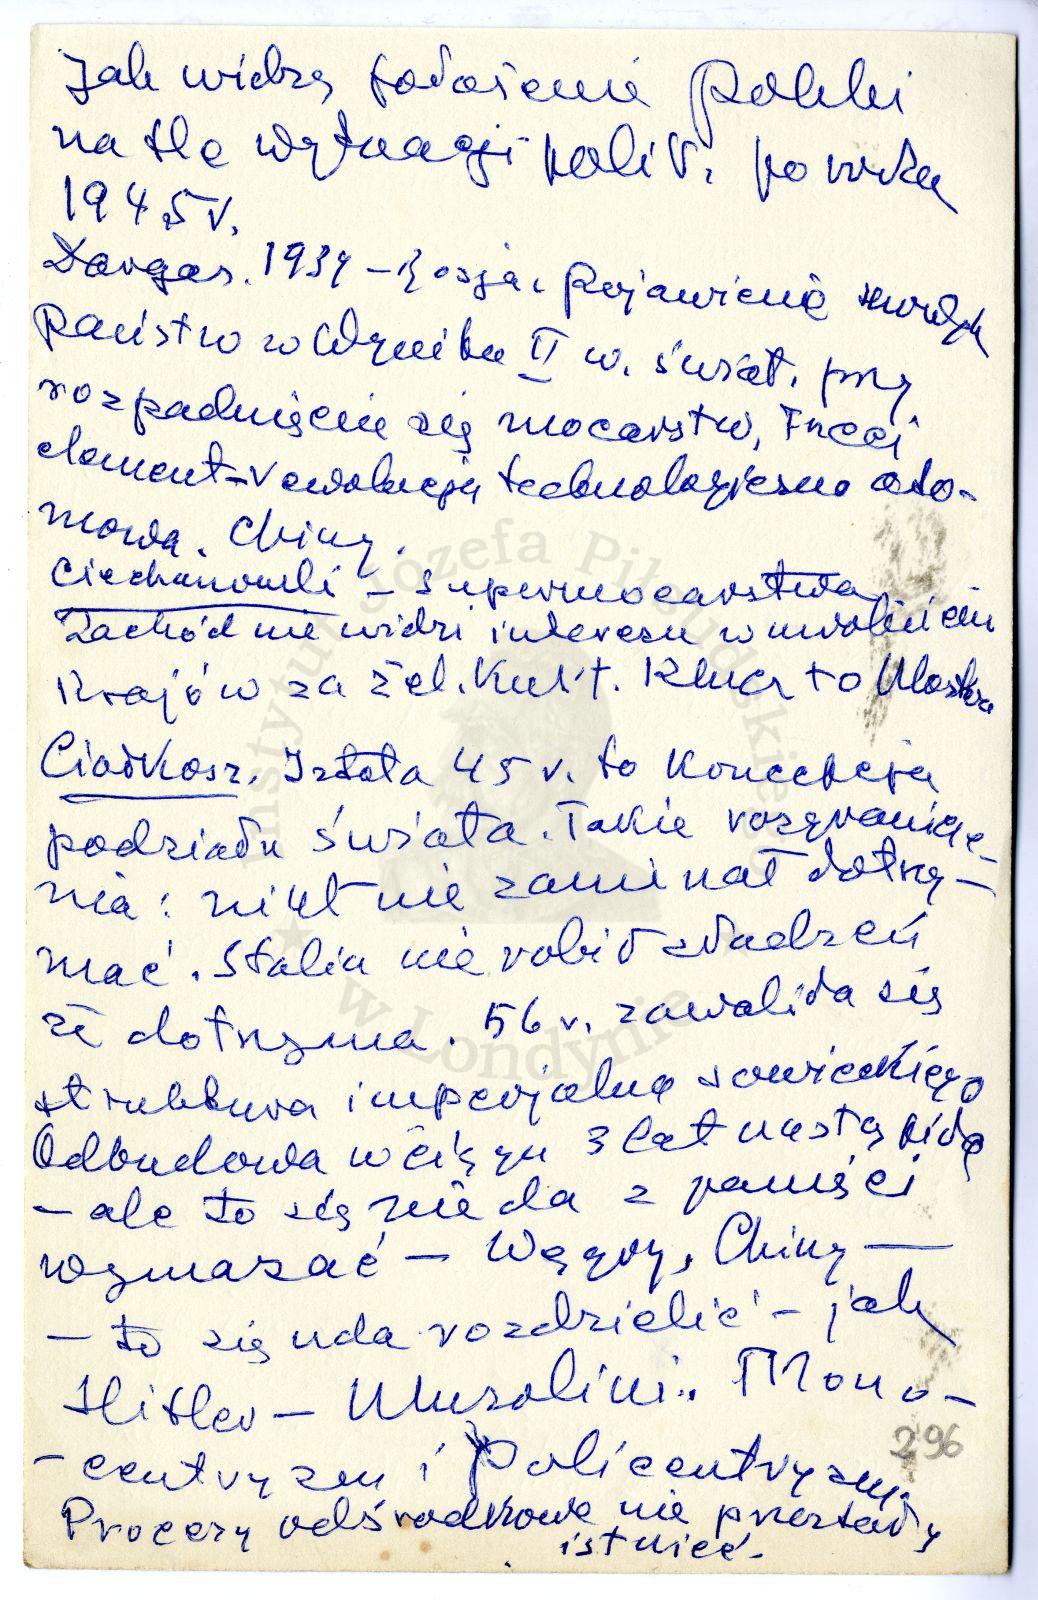 Jak widzą położenie Polski
na tle sytuacji polit. po roku
1945 r.
Dargas. 1939 – Rosja. Pojawienie nowych
Państw w wyniku II w. świat. przy
rozpadnięciu się mocarstw, Trzeci
element – rewolucja technologiczna ato-
mowa. Chiny.
Ciechanowski – supermocarstwa
Zachód nie widzi interesu w uwolnieniu
Krajów za Żel. Kurt. Klucz to Moskwa
Ciołkosz. Jałta 45 r. to koncepcja
podziału świata. Takie rozgranicze-
nia: nikt nie zamierzał dotrzy-
mać. Stalin nie robił złudzeń
że dotrzyma. 56 r. zawaliła się
struktura imperjalna sowieckiego
Odbudowa w ciągu 3 lat nastąpiła
– ale to się nie da z pamięci
wymazać – Węgry, Chiny –
– to się uda rozdzielić – jak
Hitler – Musolini. Mono-
- centryzm i Policentryzm
Procesy odśrodkowe nie przestały
istnieć.
296
Instytut Józefa Piłsudskiego
★ w Londynie ★